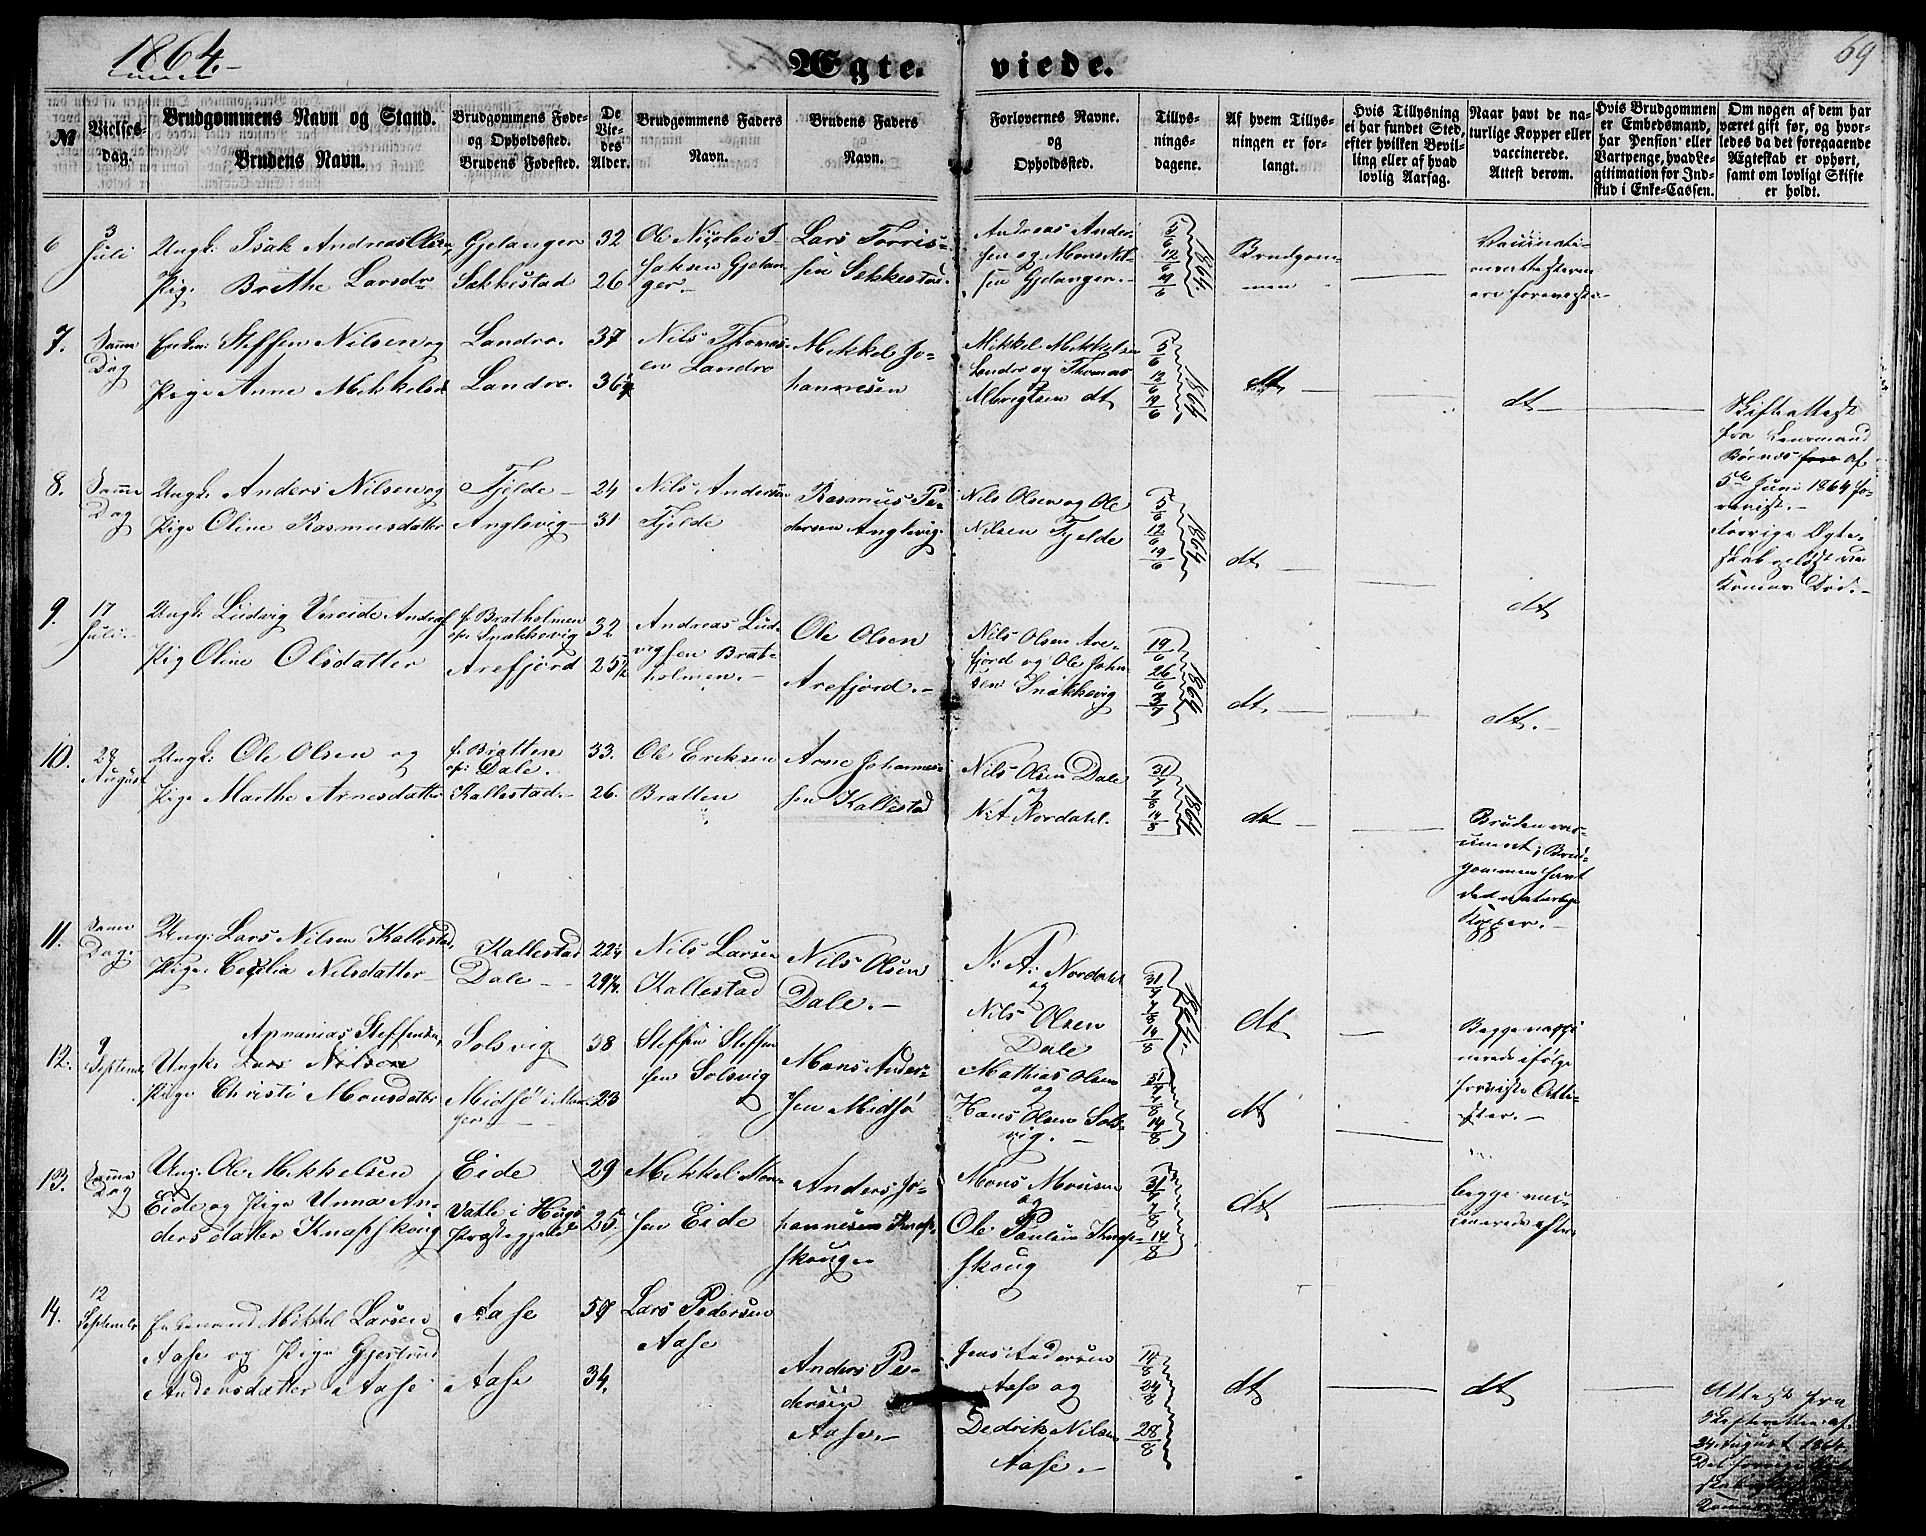 1864.
Ægte-
viede.
69
№
Vielses-
dag.
Brudgommens Navn og Stand.
Brudens Navn.
Brudgommens Føde-
og Opholdssted.
Brudens Fødested.
De
Vie-
des
Alder.
Brudgommens Faders
Navn.
Brudens Faders
Navn.
Forlovernes Navne.
og
Opholdssted.
Tillys-
nings-
dagene.
Af hvem Tillys-
ningen er for-
langt.
Hvis Tillysning
ei har fundet Sted,
efter hvilken Bevil-
ling eller af hvad
lovlig Aarsag.
Naar havt de na-
turlige Kopper eller
vaccinerede.
Attest derom.
Hvis Brudgommen
er Embedsmand,
har Pension eller
Vartpenge, hvad Le-
gitimation for Ind-
skud i Enke-Cassen.
Om nogen af dem har
været gift før, og hvor-
ledes da det foregaaende
Ægteskab er ophørt,
samt om lovligt Skifte
er holdt.
6
3
Juli
Ungk: Isak Andreas Olsen
Pige Brithe Larsdr
Gjelanger
Sekkestad
32
26
Ole Nicolai I-
saksen Gjelan-
ger.-
Lars Torris-
sen Sekkestad.
Andreas Ander-
sen og Mons Nil-
sen Gjelanger.
5/6 12/6 19/6 1864
Brudgom-
men
7.
Samme
Dag
Enkem: Steffen Nilsen og
Pige Anne Mikkelsd
Landro.
Landro.
37
36
Nils Thomas-
en Landro
Mikkel Jo-
hannesen
Mikkel Mikkelsen
Landro og Thomas
Albrigtsen dt
5/6 12/6 19/6 1864
dt
dt
Skifteattest
fra Lensmand
Børnes for af
5te Juni 1864 fo-
revist.-
Forrige Ægte-
skab opløst ved
Konens Død.-
8.
Samme
Dag
Ungk. Anders Nilsen og
Pige Oline Rasmusdatter
Fjelde
Anglevig
24
31
Nils Andersen
Fjelde
Rasmus Pe-
dersen Anglevig.
Nils Olsen og Ole
Nilsen Fjelde
5/6 12/6 19/6 1864
dt
dt
9.
17
Juli
Ungk: Ludvig Vereide Andreas
Pige Oline Olsdatter
f. Bratholmen
op: Snekkevig
Arefjord
32
25 1/2
Andreas Lud-
vigsen Brat-
holmen.-
Ole Olsen
Arefjord.-
Nils Olsen Are-
fjord og Ole John-
sen Snekkevig
19/6 26/6 3/7 1864
dt
dt.
10.
28
August
Ungk: Ole Olsen og
Pige Marthe Arnesdatter
f. Bratten
op: Dale.
Kallestad.
33.
26.
Ole Eriksen
Bratten
Arne Johannes-
sen Kallestad
Nils Olsen Dale
og
N: A Nordahl.
31/7 7/8 14/8 1864
dt
Bruden vac-
cineret; Brud-
gommen havt
de naturlige
Kopper.-
11.
Samme
Dag.
Ung: Lars Nilsen Kallestad,
Pige: Cecilia Nilsdatter
Kallestad
Dale
22 1/4
29 1/4.
Nils Larsen
Kallestad
Nils Olsen
Dale.-
N: A: Nordahl
og
Nils Olsen
Dale
31/7 7/8 14/8 1864.
dt
Begge vacci-
nerede ifølge
forviste Atte-
ster.-
12.
9
Septemb.
Annanias Steffensen,
Ungk: Lars Nilsen
Pige Christi Monsdatter
Solsvig
Midtsø i Man-
ger
38
23
Steffen Steffen
sen Solsvig
Mons Ander-
sen Midtsø
Mathias Olsen
og
Hans Olsen Sols-
vig.-
31/7 7/8 14/8
dt
13.
Samme
Dag
Ung: Ole Mikkelsen
Eide og Pige Unna An-
dersdatter Knapskoug
Eide
Vatle i Hougs
Præstegjeld
29
25.
Mikkel Mon-
sen Eide
Anders Jo-
hannesen Knap-
skoug
Mons Monsen
og
Ole Paulsen Knap-
skoug
31/7 7/8 14/8
dt
begge vac-
cinerede
14.
12
September
Enkemand Mikkel Larsen
Aase og Pige Gjertrud
Andersdatter Aase
Aase
Aase
57
34.
Lars Pedersen
Aase
Anders Pe-
dersen
Aase.-
Jens Andersen
Aase og
Dedrik Nilsen
Aase.-
14/8 24/8 28/8
dt
dt
Attest fra
Skifteretten af
24 August 1864.
Det forrige Æg-